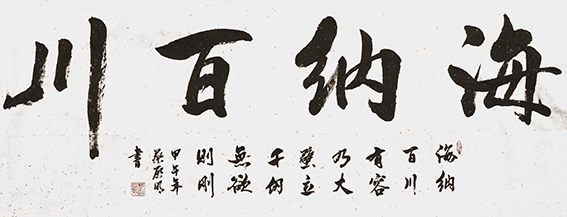 海纳百川
海纳
百川
有容
乃大
壁立
千仞
無欲
则刚
甲午年
書